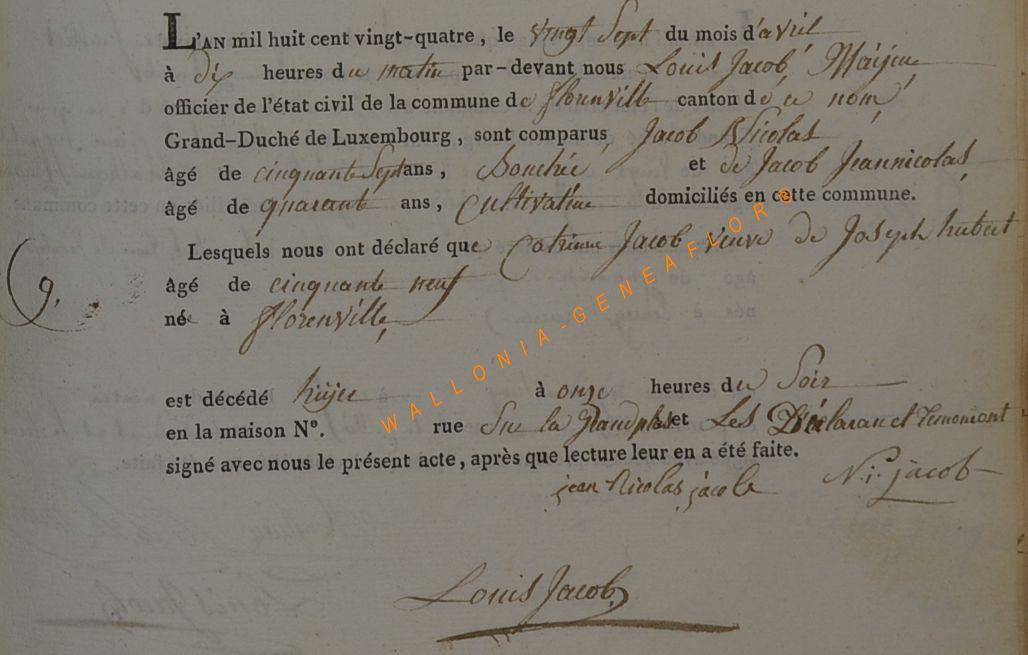 L'AN mil huit cent vingt-quatre, le vingt Sept du mois d'avril
à Dix heures du matin par-devant nous Louis Jacob,
officier de l'état civil de la commune de florenville canton de ce nom
Grand-Duché de Luxembourg, sont comparus, Jacob Nicolas
âgé de cinquante Sept ans, et de Jacob Jeannicolas,
âgé de quarante ans, Cultivateur domiciliés en cette commune.
Lesquels nous ont déclaré que Jacob veuve de Joseph hubert
âgé de cinquante neuf
9.
née à florenville,
est décédé à onze heures du Soir
en la maison Nº. rue Sur la et Les
signé avec nous le présent acte, après que lecture leur en a été faite.
jean Nicolas jacob N.i. jacob
Louis Jacob
WALLONIA-GENEAFLOR®